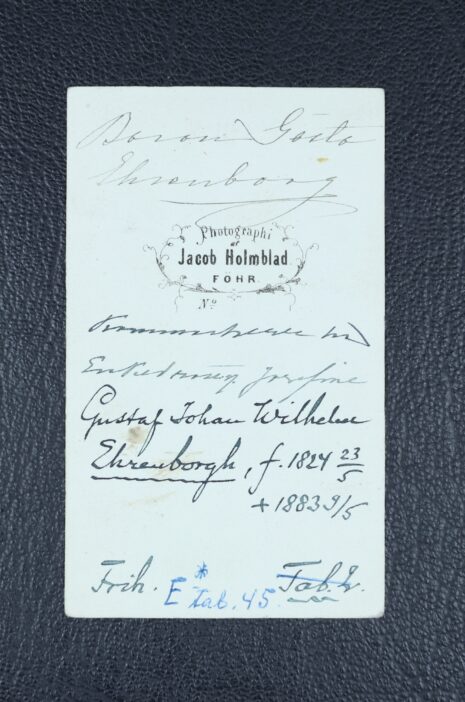 Baron Gösta
Ehrenborg
Photographi
af
Jacob Holmblad
FÖHR
No
Kammarherre hos
Enkedrottng Josefine
Gustaf Johan Wilhelm
Ehrenborgh, f. 1824 23/5
+ 1883 9/5
Frih. Tab. 2.
E * Tab. 45